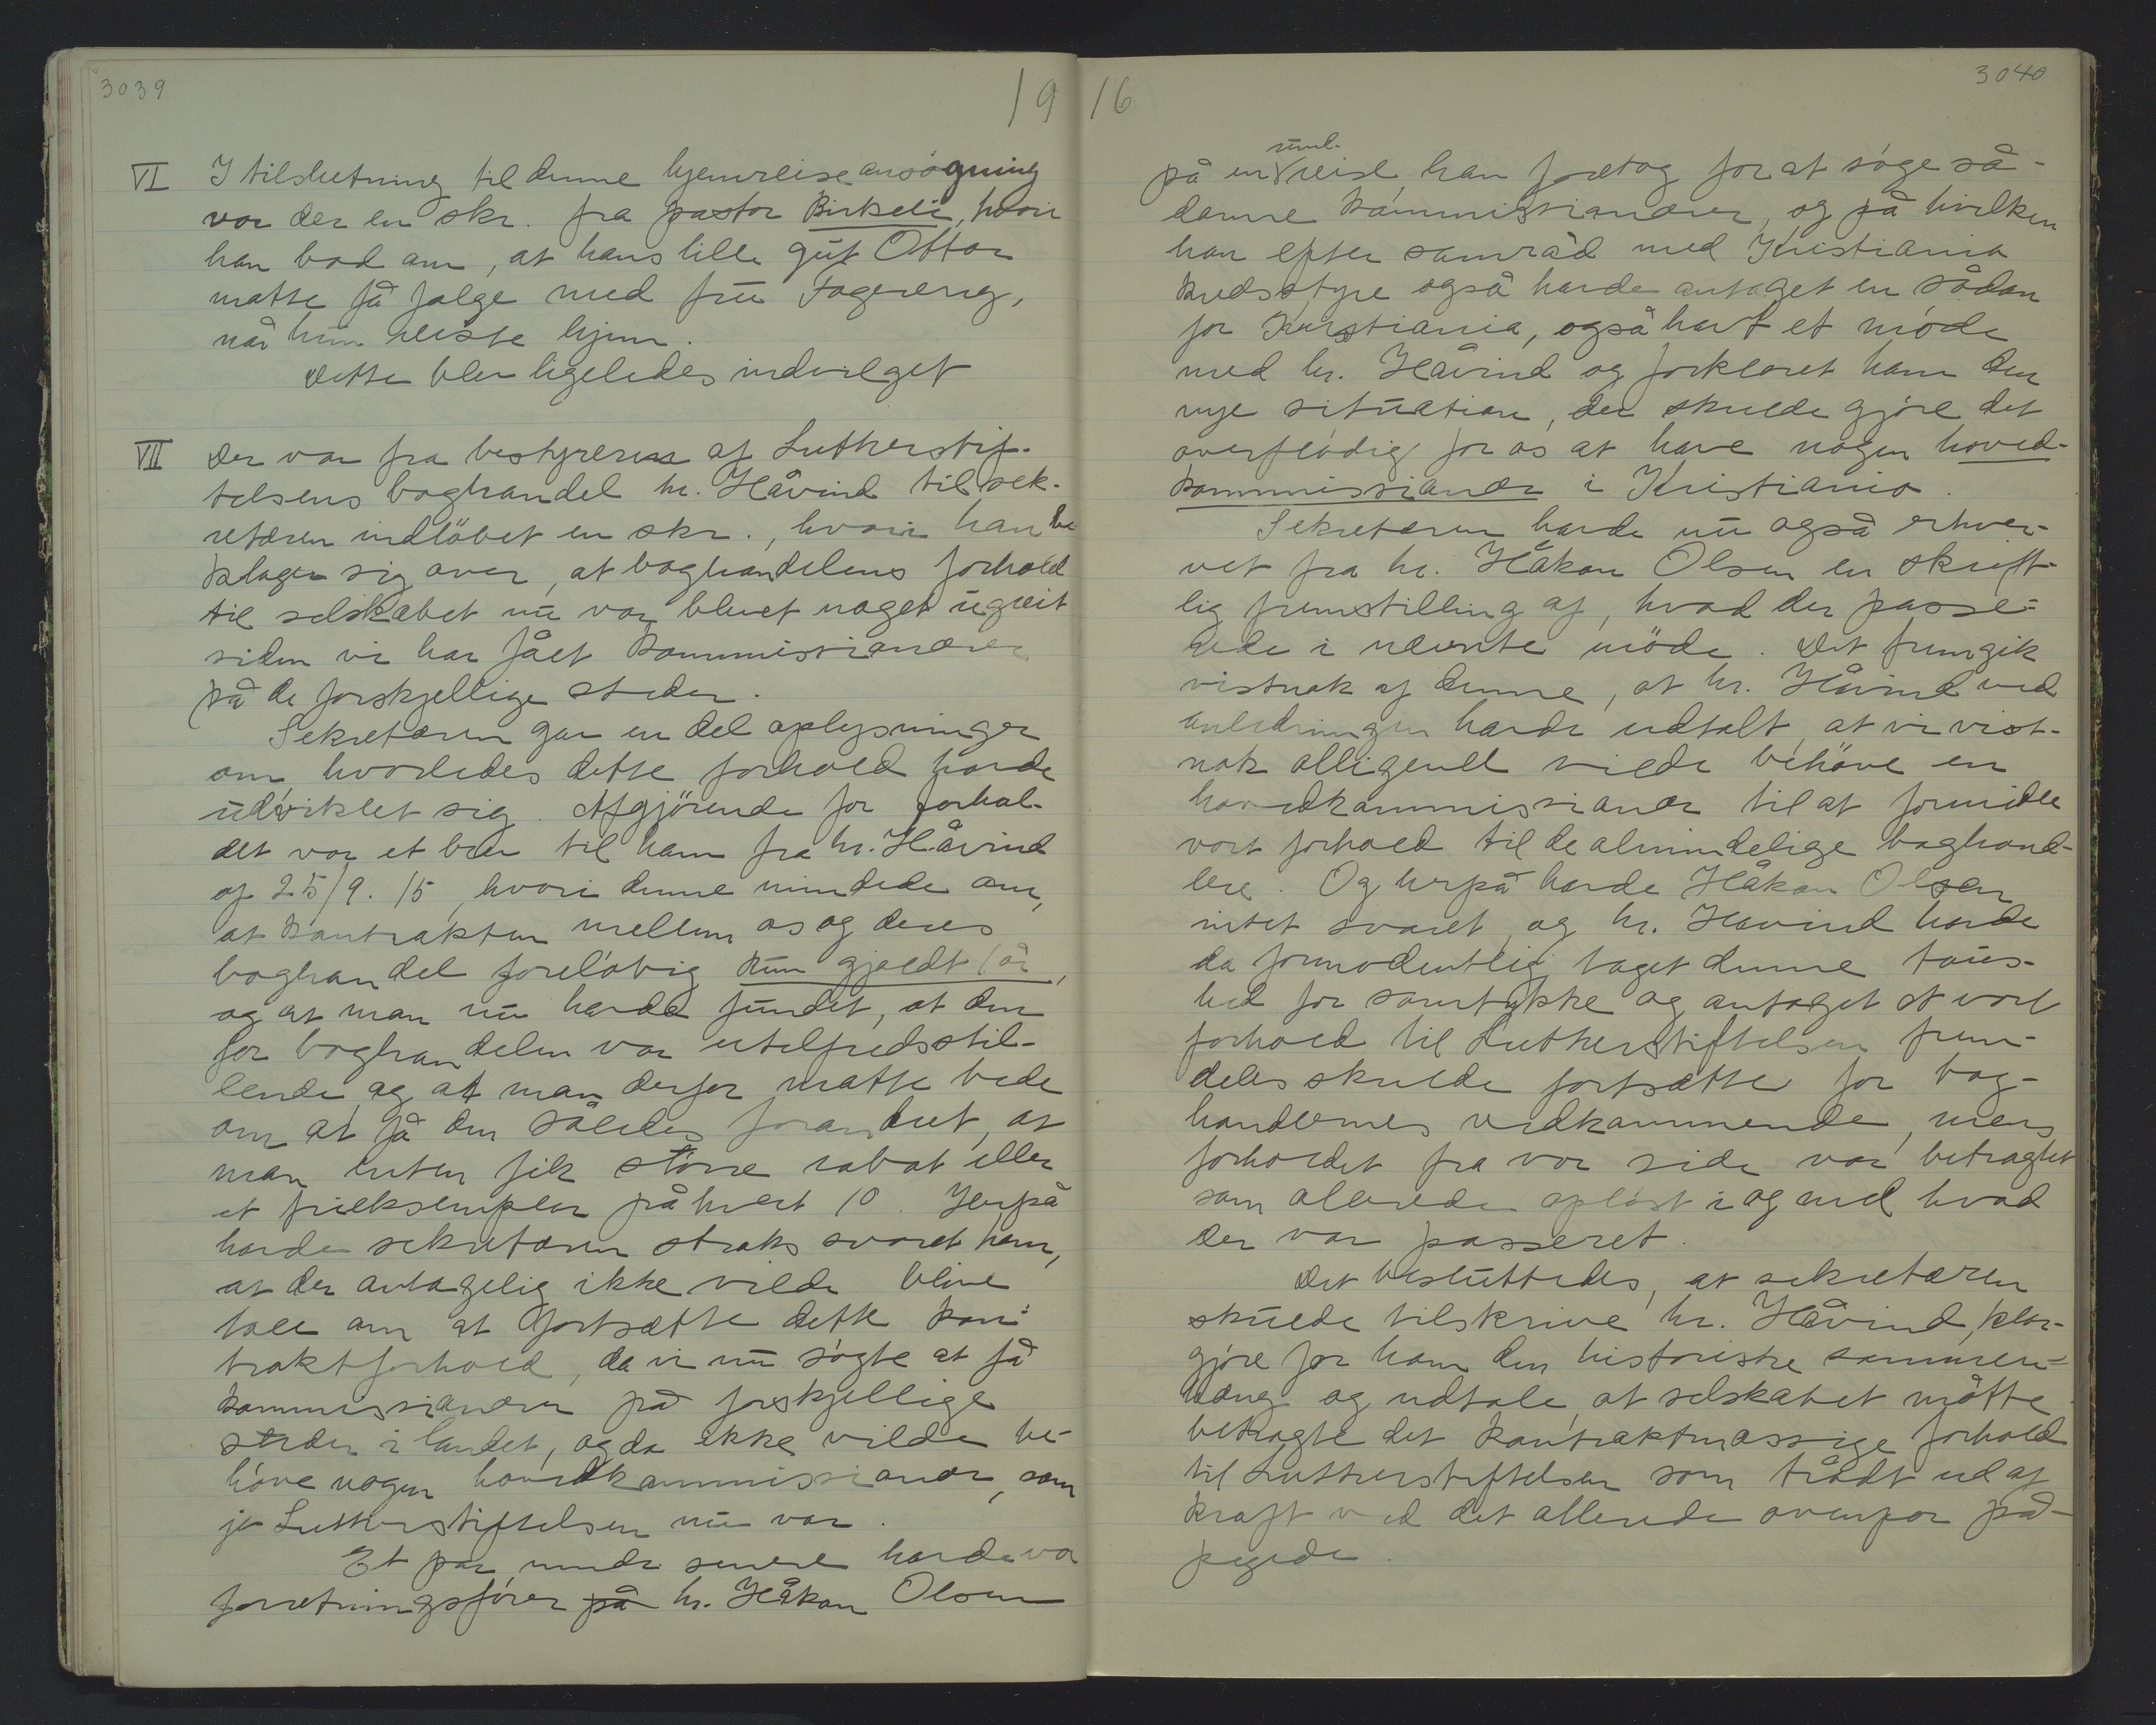 3039
19
VI I tilslutning til denne hjemreiseansøgning
var der en skr. fra pastor Birkeli, hvori
han bad om, at hans lille gut Ottar
matte få følge med fru Fagereng,
når hun reiste hjem.
Dette blev ligeledes indvilget
VII Der var fra bestyreren af Lutherstif-
telsens boghandel hr. Håvind til sek-
retæren indløbet en skr., hvori han be
klager sig over, at boghandelens forhold
til selskabet nu var blevet noget ugreit
siden vi har fået kommissionærer
på de forskjellige steder.
Sekretæren gav en del oplysninger
om hvorledes dette forhold havde
udviklet sig. Afgjørende for forhol-
det var et brev til ham fra hr. Håvind
af 25/9. 15, hvori denne mindede om,
at kontrakten mellem os og deres
boghandel foreløbig kun gjaldt 1 år,
og at man nu havde fundet, at den
for boghandelen var utilfredsstil-
lende og at man derfor matte bede
om at få den således forandret, at
man enten fik større rabat eller
et frieksemplar på hvert 10. Herpå
havde sekretæren straks svaret ham,
at der antagelig ikke vilde blive
tale om at fortsætte dette kon-
traktforhold, da vi nu søgte at få
kommissionærer på forskjellige
steder i landet, og da ikke vilde be-
høve nogen hovedkommissionær, som
jo Lutherstiftelsen nu var.
Et par mndr senere havde vor
forretningsfører på hr. Håkon Olsen
16
3040
på en reise, han foretog for at søge så-
danne kommissionærer, og på hvilken
han efter samråd med Kristiania
kredsstyre også havde antaget en sådan
for Kristiania, også havt et møde
med hr. Håvind og forklaret ham den
nye situation, der skulde gjøre det
overflødig for os at have nogen hoved-
kommissionær i Kristiania.
Sekretæren havde nu også erhver-
vet fra hr. Håkon Olsen en skrift-
lig fremstilling af, hvad der passe-
rede i nævnte møde. Det fremgik
vistnok af denne, at hr. Håvind ved
anledningen havde udtalt, at vi vist-
nok alligevel vilde behøve en
hovedkommissionær til at formidle
vort forhold til de almindelige boghand-
lere. Og herpå havde Håkon Olsen
intet svaret, og hr. Havind havde
da formodentlig taget denne taus-
hed for samtykke og antaget at vort
forhold til Lutherstiftelsen frem-
deles skulde fortsætte for bog-
handlernes vedkommende, mens
forholdet fra vor side var betragtet
som allerede opløst i og med, hvad
der var passeret.
Det besluttedes, at sekretæren
skulde tilskrive hr. Håvind, klar-
gjøre for ham den historiske sammen-
hæng og udtale, at selskabet måtte
betragte det kontraktmæssige forhold
til Lutherstiftelsen som trådt ud af
kraft ved det allerede ovenfor på-
pegede.